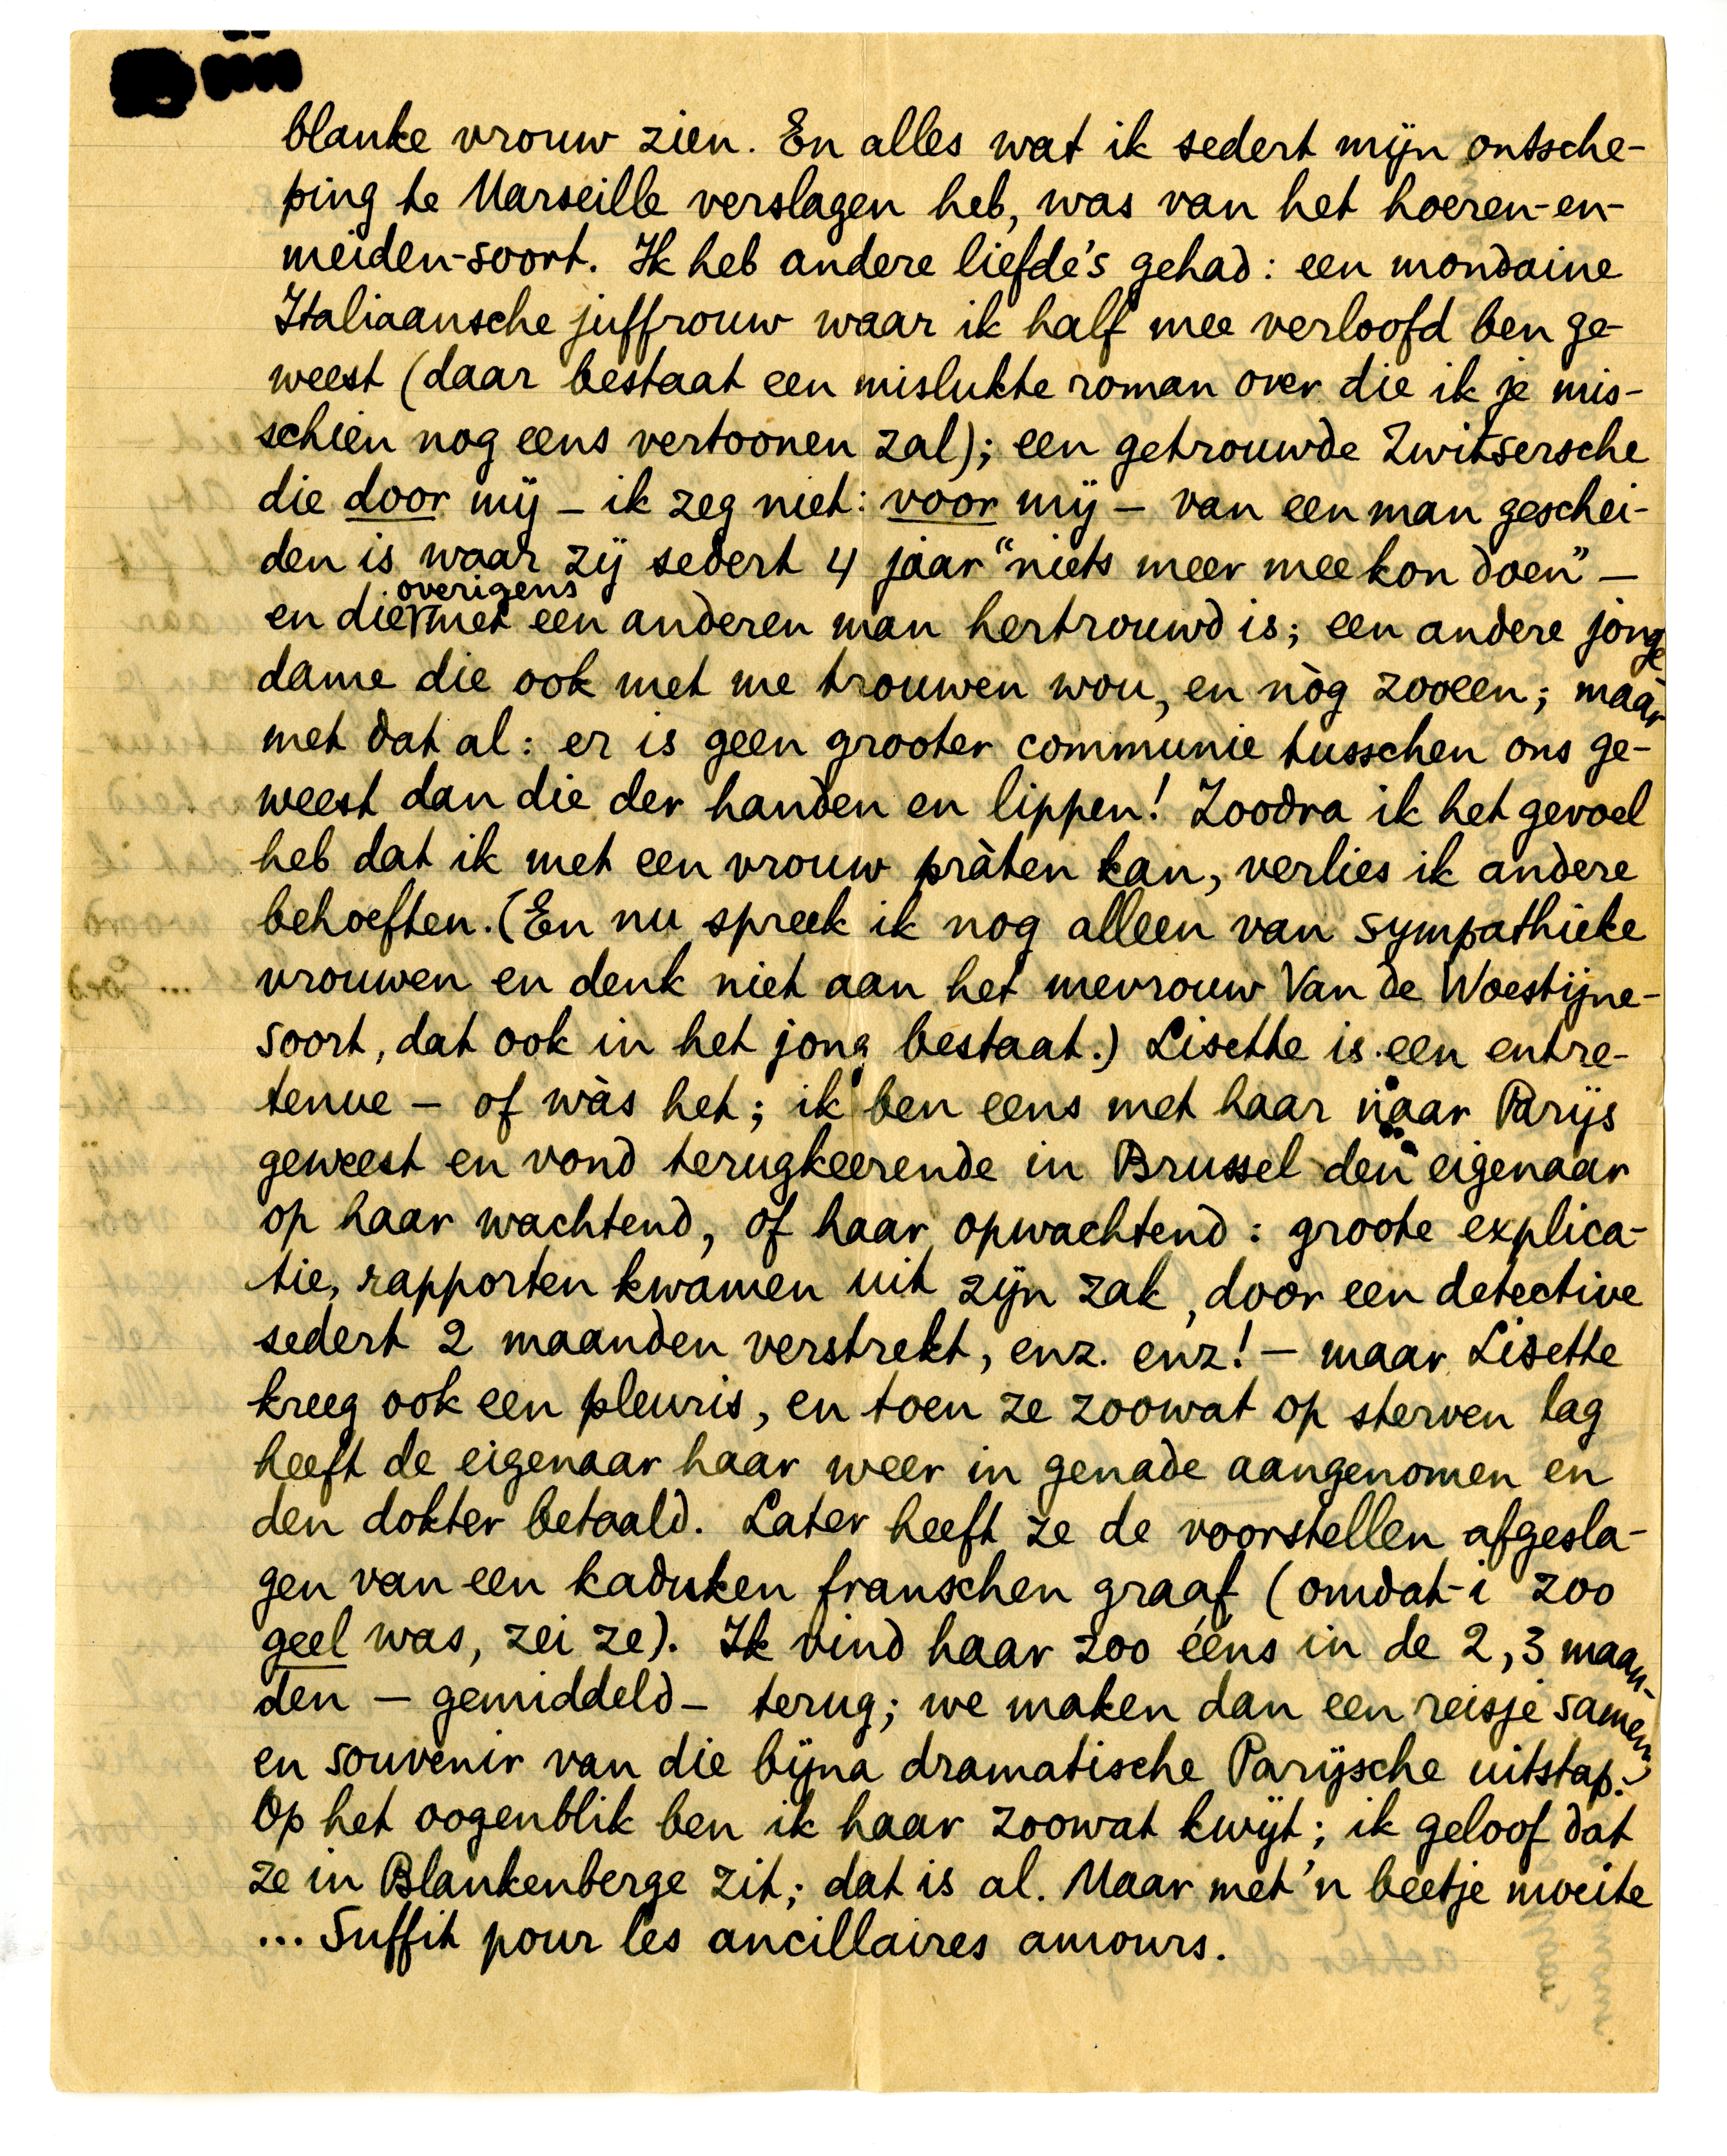 blanke vrouw zien. En alles wat ik sedert mijn ontsche-
ping te Marseille verslagen heb, was van het hoeren-en-
meiden-soort. Ik heb andere liefde's gehad: een mondaine
Italiaansche juffrouw waar ik half mee verloofd ben ge-
weest (daar bestaat een mislukte roman over die ik je mis-
schien nog eens vertoonen zal); een getrouwde Zwitsersche
die door mij – ik zeg niet: voor mij – van een man geschei-
den is waar zij sedert 4 jaar "niets meer mee kon doen" –
en die overigens met een anderen man hertrouwd is; een andere jonge
dame die ook met me trouwen wou, en nòg zooeen; maar
met dat al: er is geen grooter communie tusschen ons ge-
weest dan die der handen en lippen! Zoodra ik het gevoel
heb dat ik met een vrouw pràten kan, verlies ik andere
behoeften. (En nu spreek ik nog alleen van sympathieke
vrouwen en denk niet aan het mevrouw Van de Woestijne-
soort, dat ook in het jong bestaat.) Lisette is een entre-
tenue – of wàs het; ik ben eens met haar naar Parijs
geweest en vond terugkeerende in Brussel den eigenaar
op haar wachtend, of haar opwachtend: groote explica-
tie, rapporten kwamen uit zijn zak, door een detective
sedert 2 maanden verstrekt, enz. enz! – maar Lisette
kreeg ook een pleuris, en toen ze zoowat op sterven lag
heeft de eigenaar haar weer in genade aangenomen en
den dokter betaald. Later heeft ze de voorstellen afgesla-
gen van een kaduken franschen graaf (omdat-i zoo
geel was, zei ze). Ik vind haar zoo ééns in de 2, 3 maan-
den – gemiddeld – terug; we maken dan een reisje samen,
en souvenir van die bijna dramatische Parijsche uitstap.
Op het oogenblik ben ik haar zoowat kwijt; ik geloof dat
ze in Blankenberge zit; dat is al. Maar met 'n beetje moeite
... Suffit pour les ancillaires amours.